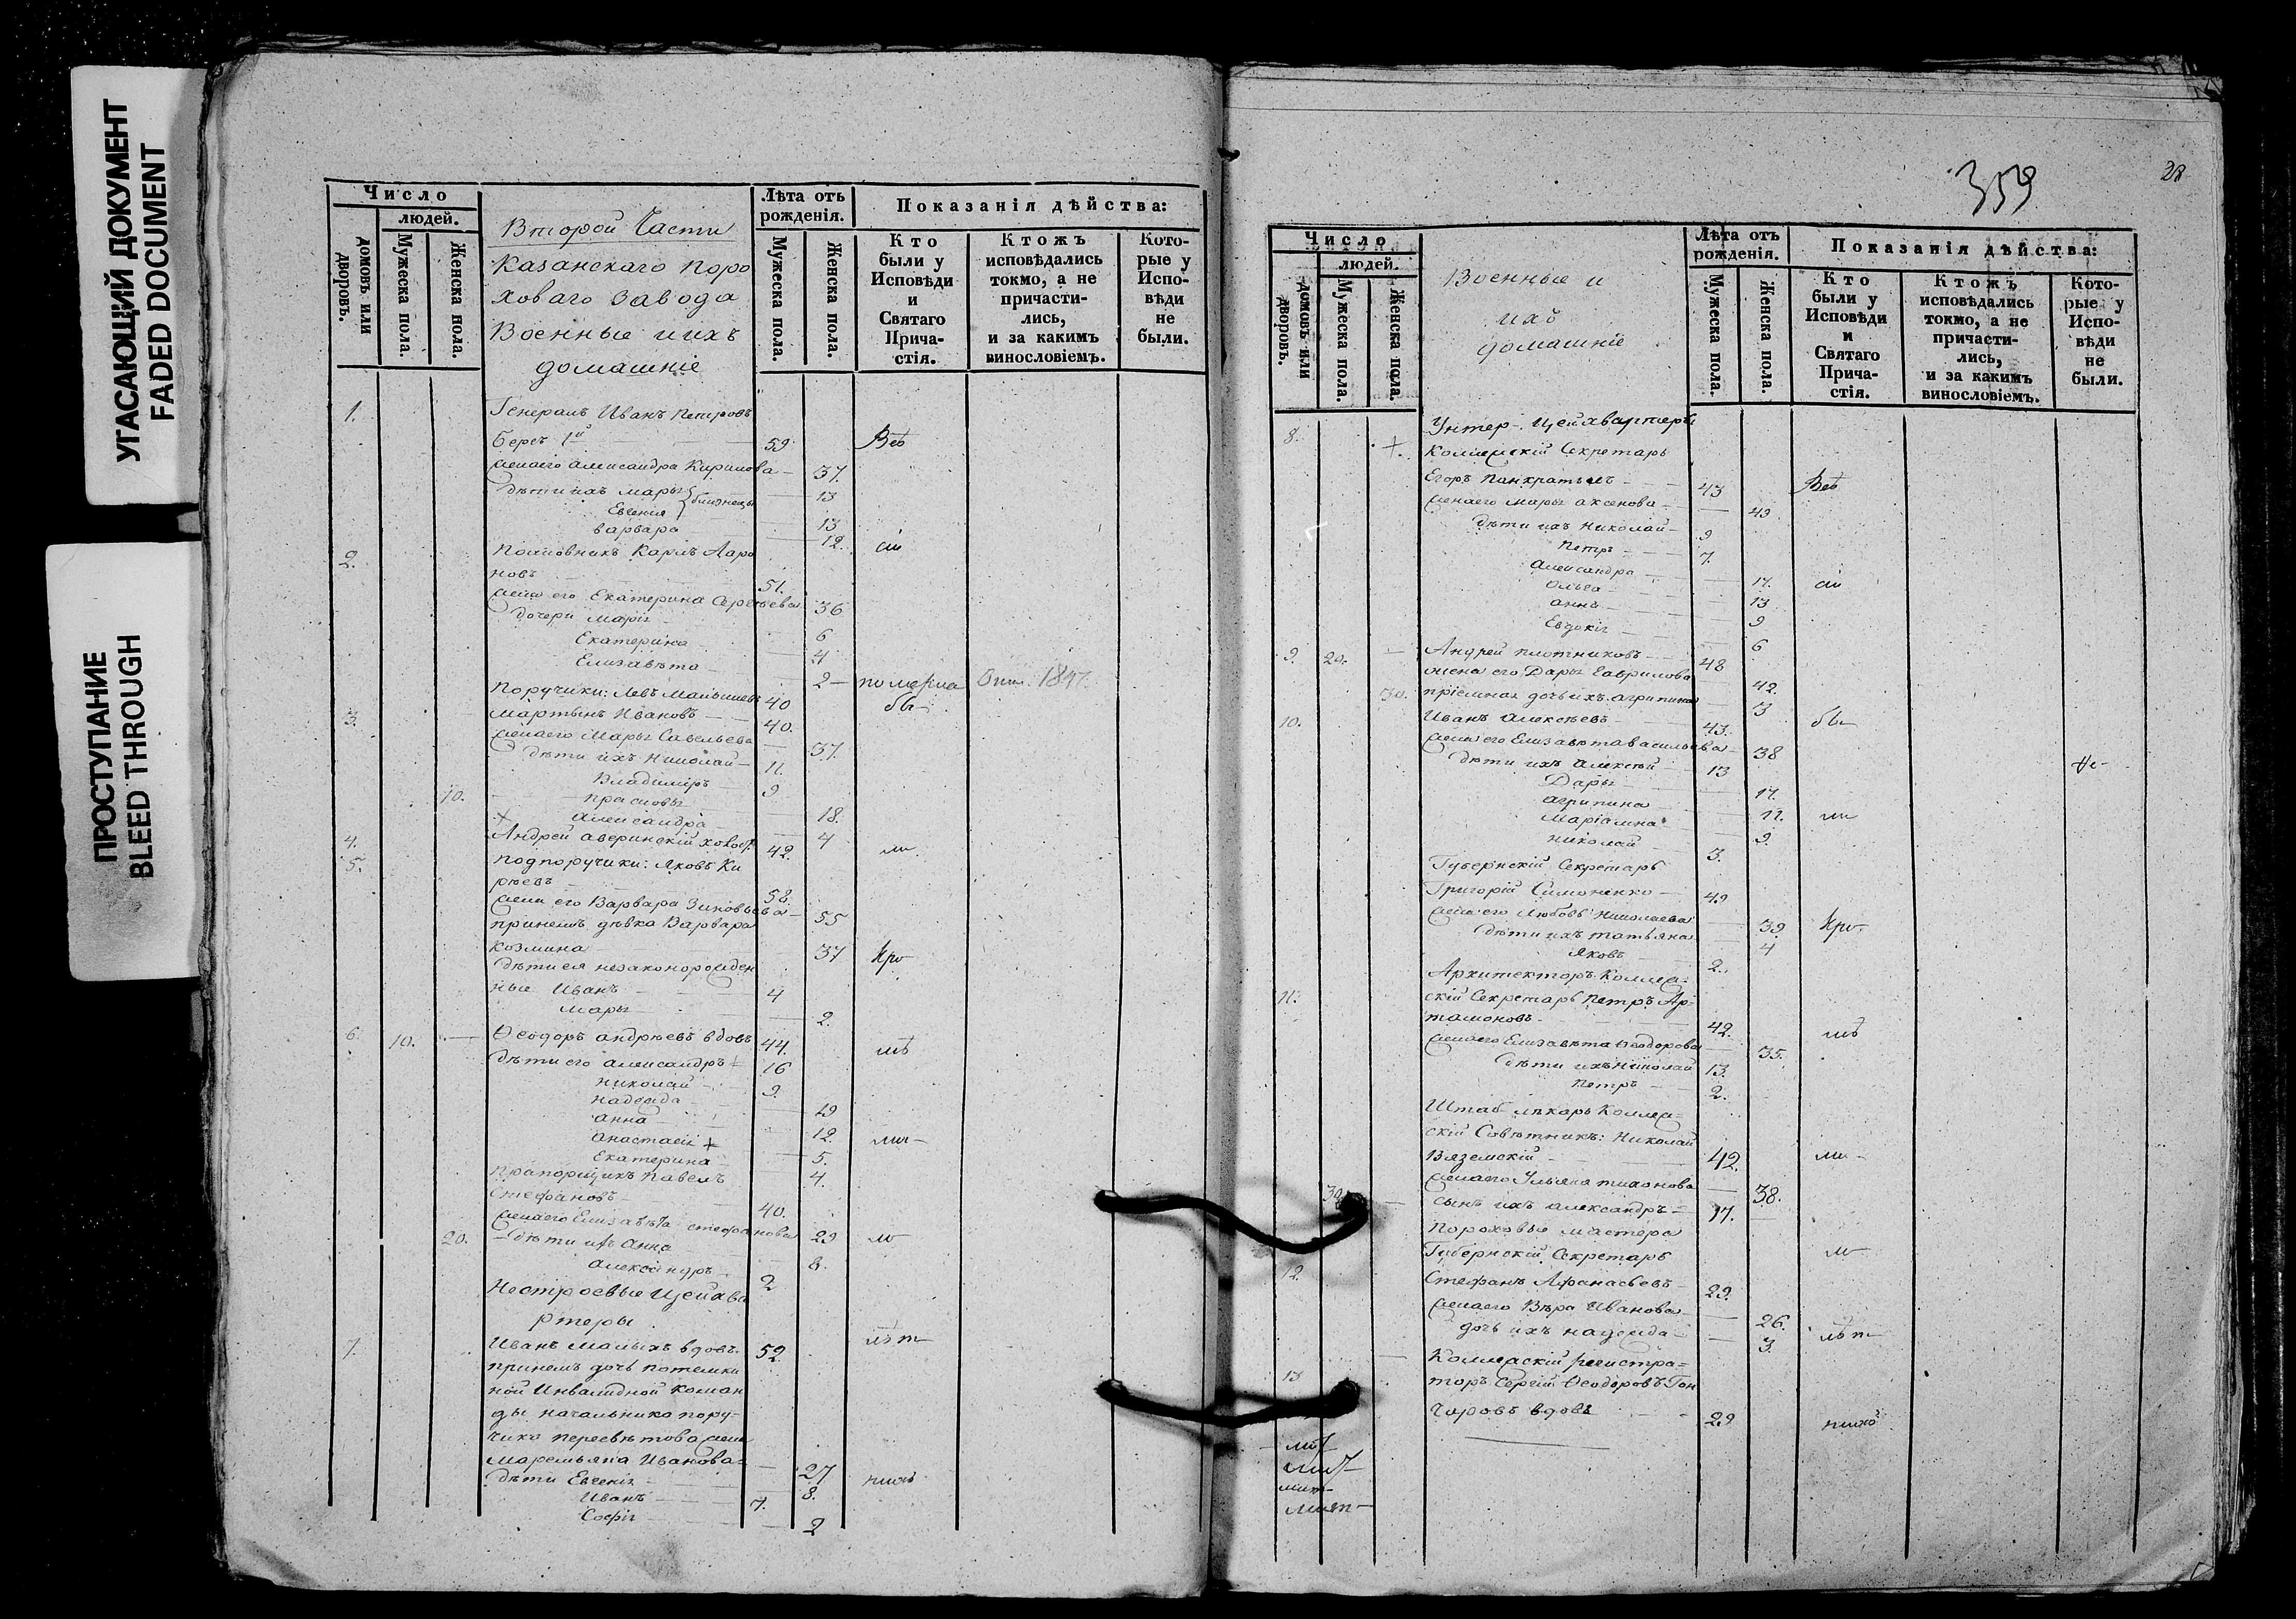 УГАСАЮЩИЙ ДОКУМЕНТ
FADED DOCUMENT
ПРОСТУПАНИЕ
BLEED THROUGH
Число
людей.
домовъ или дворовъ.
Мужеска пола.
Женска пола.
Второй Части
Казанскаго поро
ховаго завода
Военные и ихъ
домашніе
Лѣта отъ рожденія.
Мужеска пола.
Женска пола.
Показанія дѣйства:
Кто были у Исповѣди и Святаго Прича- стія.
Ктожъ исповѣдались токмо, а не причасти- лись, и за какимъ винословіемъ.
Кото- рые у Испо- вѣди не были.
1. Генералъ Иванъ Петровъ
59
жена его Александра Кирилова 37.
дѣти ихъ Марья 13
Евгенія близнецы 13
Варвара 12.
2. Полковникъ Карлъ Ааро
новъ 51.
жена его Екатерина Сергѣева 36
дочери Марія 6
Екатерина 4
Елизавѣта 2 померла 1847.
Поручики: Левъ 40
3. Мартынъ Ивановъ 40.
жена его Марья Савельева 37.
дѣти ихъ Николай 11.
Владиміръ 9
10. Прасковья 18.
+ Александра 4
4. Андрей 42.
5. Подпоручики: Яковъ Ки
рѣевъ 58.
жена его Варвара Зиновьева 55
дѣвка Варвара
Козмина 37
дѣти ея незаконорожден
ные Иванъ 4
Марья 2.
6. 10. Ѳеодоръ Андреевъ вдовъ 44.
дѣти его Александръ 16
Николай 9.
Надежда 19
Анна 12.
Анастасія + 5.
Екатерина 4.
Прапорщикъ Павелъ
Стефановъ 40.
жена его Елизавѣта Стефанова 29
20. дѣти ихъ Анна 8.
Александръ 2
Нестроевые Цейхва
ртеры
7. Иванъ Малыхъ вдовъ 52.
ной Инвалидной коман
ды начальника пору-
чика жена
Маремьяна Иванова 27
дѣти Евгенія 8.
Иванъ 7.
Софія 2
359
28
Число
людей.
домовъ или дворовъ.
Мужеска пола.
Женска пола.
Военные и
ихъ
домашніе
Лѣта отъ рожденія.
Мужеска пола.
Женска пола.
Показанія дѣйства:
Кто были у Исповѣди и Святаго Прича- стія.
Ктожъ исповѣдались токмо, а не причасти- лись, и за какимъ винословіемъ.
Кото- рые у Испо- вѣди не были.
8. Унтер-Цейхвартеръ
+ Секретарь
Егоръ Панкратьевъ 43
жена его Марья Аксенова 49
дѣти ихъ Николай 9
Петръ 7.
Александра 17.
Ольга 13
Анна 9
Евдокія 6
9. 20. Андрей Плотниковъ 48
жена его Дарья Гаврилова 42.
30. пріемная дочь ихъ Агрипина 3
10. Иванъ Алексѣевъ 43.
жена его Елизавѣта Васильева 38
дѣти ихъ Алексѣй 13
Дарья 17.
Агрипина 11.
Маріамна 9.
Николай 3.
Губернскій Секретарь
Григорій Симоненко 49
жена его Любовь Николаева 39
дѣти ихъ Татьяна 4
Яковъ 2.
Архитекторъ Коллеж-
11. скій Секретарь Петръ Ар-
тамоновъ 42.
жена его Елизавѣта Ѳеодорова 35.
дѣти ихъ Николай 13.
Петръ 2.
Штаб лѣкарь Коллеж-
скій Совѣтникъ: Николай
Вяземскій 42.
жена его Ульяна Тихонова 38.
30. сынъ ихъ Александръ 17.
Пороховые мастера
Губернскій Секретарь
12. Стефанъ Афанасьевъ 29.
жена его Вѣра Иванова 26.
дочь ихъ Надежда 3.
Коллежскій регистра-
13 торъ Сергій Ѳеодоровъ Гон
чаровъ вдовъ 29